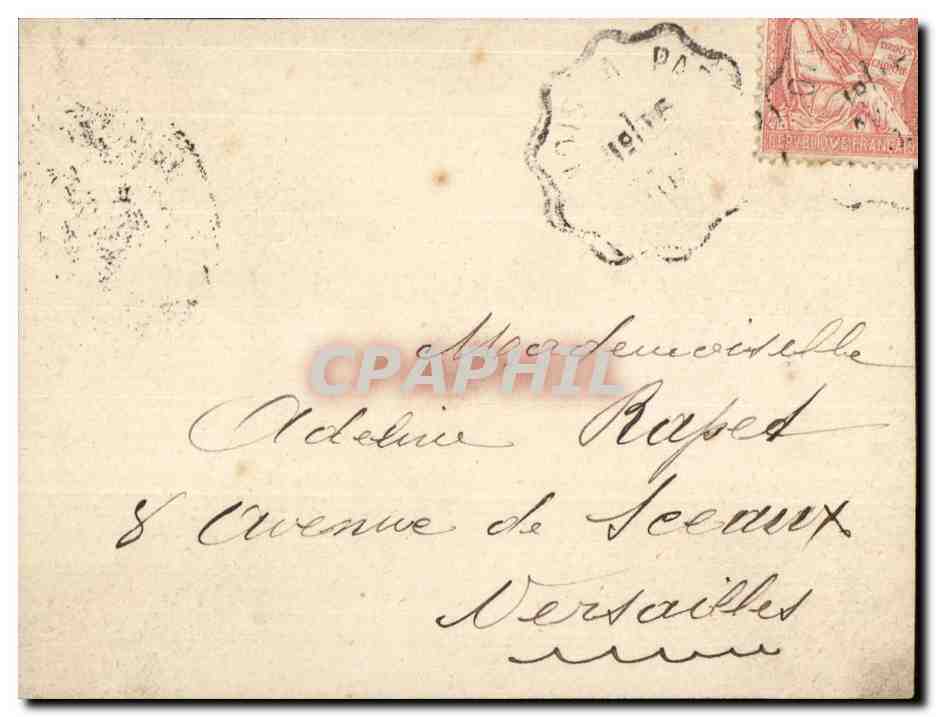 DROITS
DE L'HOMME
REPUBLIQUE FRANCAISE
CPAPHIL
Mademoiselle
Adeline Rapet
8 Avenue de Sceaux
Versailles